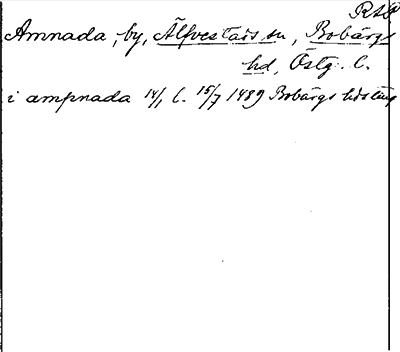 RAP
Amnada, by, Älfvestads sn, Bobärgs
hd, Östg. l.
i ampnada 14/1 l. 15/7 1489 Bobärgs hds ting